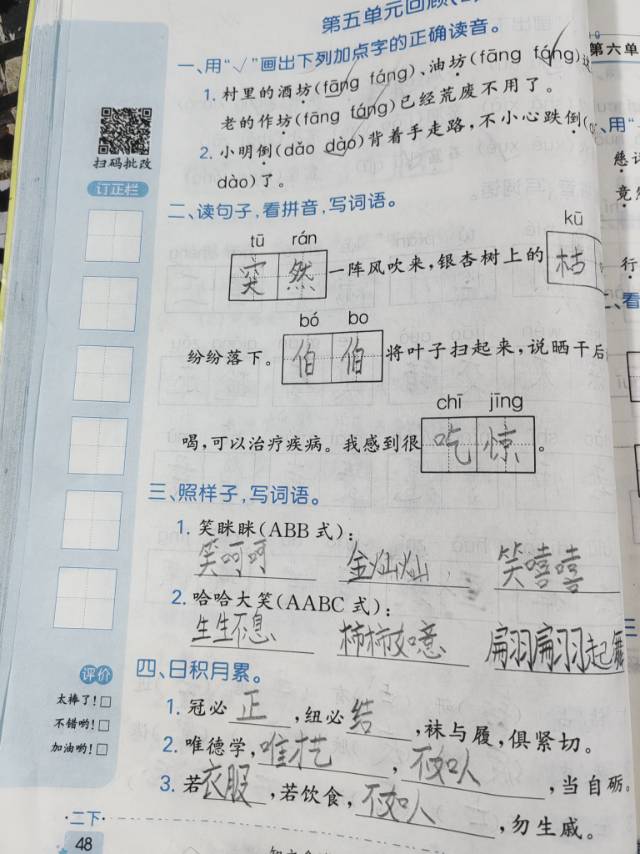 第五单元回顾(
一、用“√”画出下列加点字的正确读音。
1. 村里的酒坊(fāng fáng)、油坊(fāng fáng)
老的作坊(fāng fáng)已经荒废不用了。
2. 小明倒(dǎo dào)背着手走路，不小心跌倒(
dào)了。
扫码批改
订正栏
二、读句子，看拼音，写词语。
tū rán kū
突然一阵风吹来，银杏树上的枯
bó bo
纷纷落下。伯伯将叶子扫起来，说晒干后
chī jīng
喝，可以治疗疾病。我感到很吃惊。
三、照样子，写词语。
1. 笑眯眯(ABB 式)：
笑呵呵 金灿灿 笑嘻嘻
2. 哈哈大笑(AABC 式)：
生生不息 柿柿如意 扁羽扁羽起舞
四、日积月累。
1. 冠必正，纽必结，袜与履，俱紧切。
2. 唯德学，唯才艺，不如人，当自砺。
3. 若衣服，若饮食，不如人，勿生戚。
评价
太棒了！□
不错哟！□
加油哟！□
·二下·
48
第六单
一、用“
慈
竟
行
二、看
三